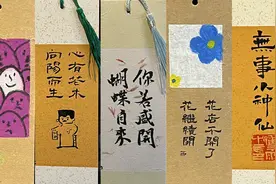 心有花木
向陽而生
你若盛開
蝴蝶自來
花店不開了
花繼續開
無事小神仙